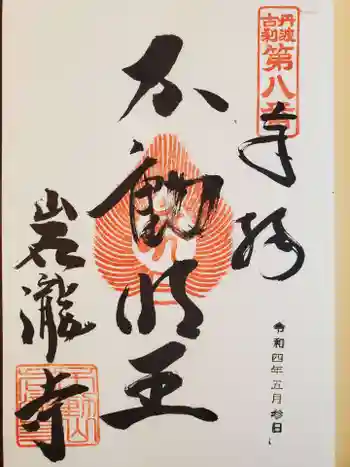 丹波
古刹
第八番
奉拝
令和四年五月参日
不動明王
岩瀧寺